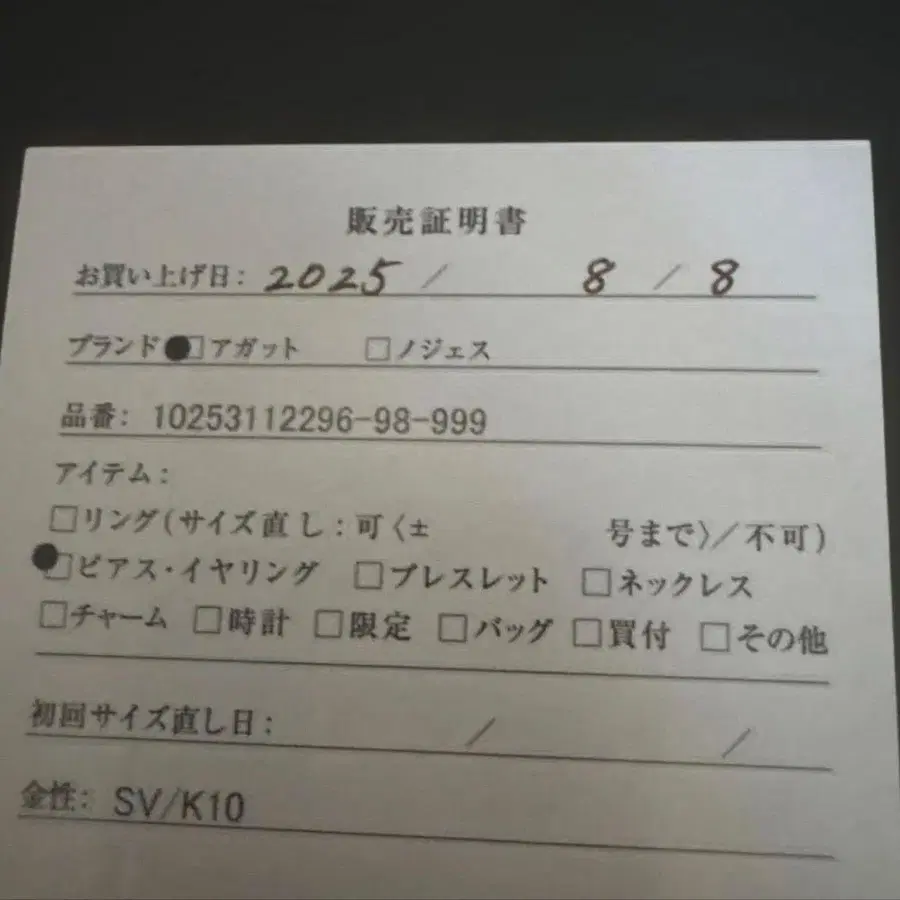 販売証明書
お買い上げ日: 2025 / 8 / 8
ブランド ●□アガット □ノジェス
品番: 10253112296-98-999
アイテム:
□リング(サイズ直し:可〈± 号まで〉/不可)
●□ピアス・イヤリング □ブレスレット □ネックレス
□チャーム □時計 □限定 □バッグ □買付 □その他
初回サイズ直し日: / /
金性: SV/K10